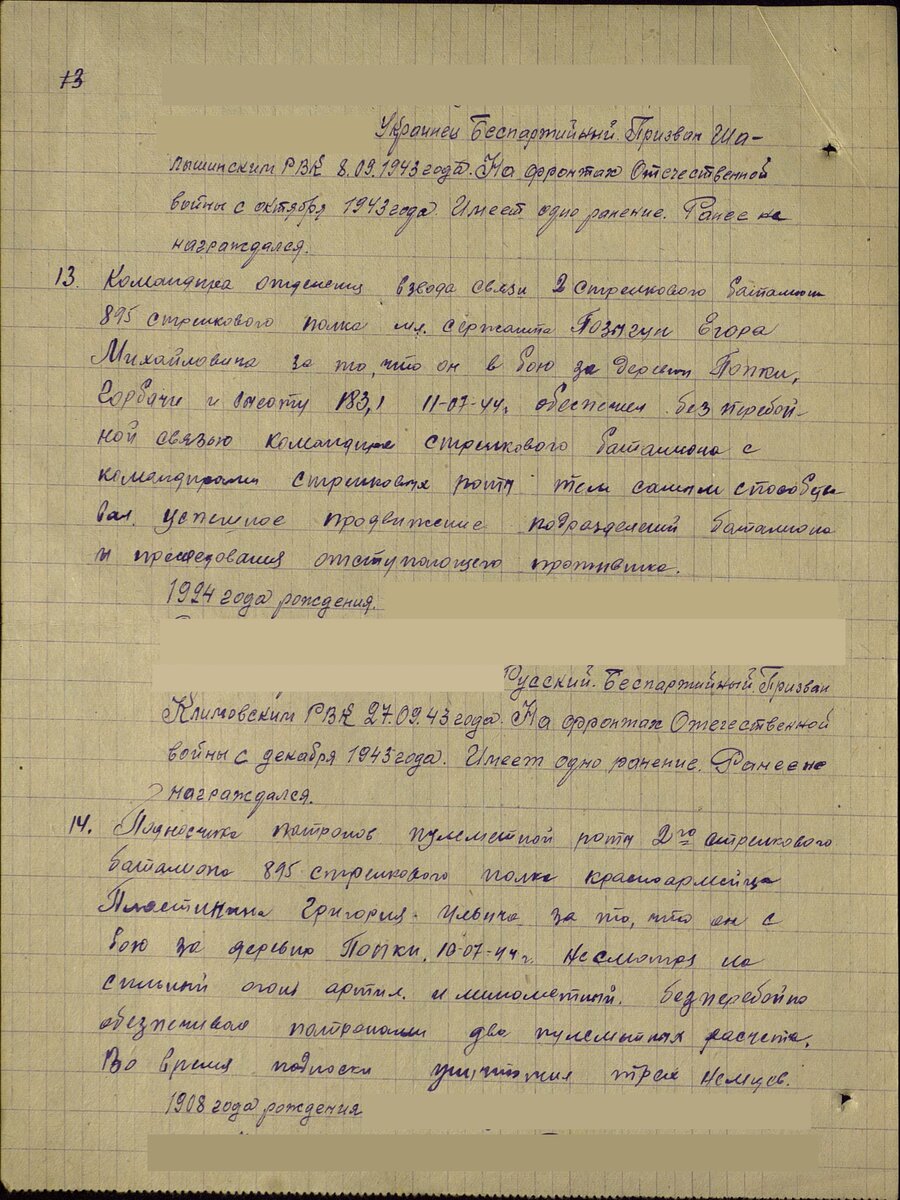 13
Украинец Беспартийный. Призван Ша-
лышинским РВК 8.09.1943 года. На фронтах Отечественной
войны с октября 1943 года. Имеет одно ранение. Ранее не
награждался.
13. Командира отделения взвода связи 2 стрелкового баталиона
895 стрелкового полка мл. сержанта Егора
Михайловича за то, что он в бою за деревни Попки,
Горбачи и высоту 183,1 11-07-44г. обеспечил безперебой-
ной связью командира стрелкового баталиона с
командирами стрелковых рот тем самым способство
вал успешное продвижение подразделений баталиона
и преследования отступающего противника.
1924 года рождения.
Русский. Беспартийный. Призван
Климовским РВК 27.09.43 года. На фронтах Отечественной
войны с декабря 1943 года. Имеет одно ранение. Ранее не
награждался.
14. Подносчика патронов пулеметной роты 2го стрелкового
баталиона 895 стрелкового полка красноармейца
Пластинина Григория Ильича за то, что он в
бою за деревню Попки. 10-07-44г. Несмотря на
сильный огонь артил. и минометный. безперебойно
обезпечивал патронами два пулеметных расчета.
Во время подноски уничтожил трех немцев.
1908 года рождения